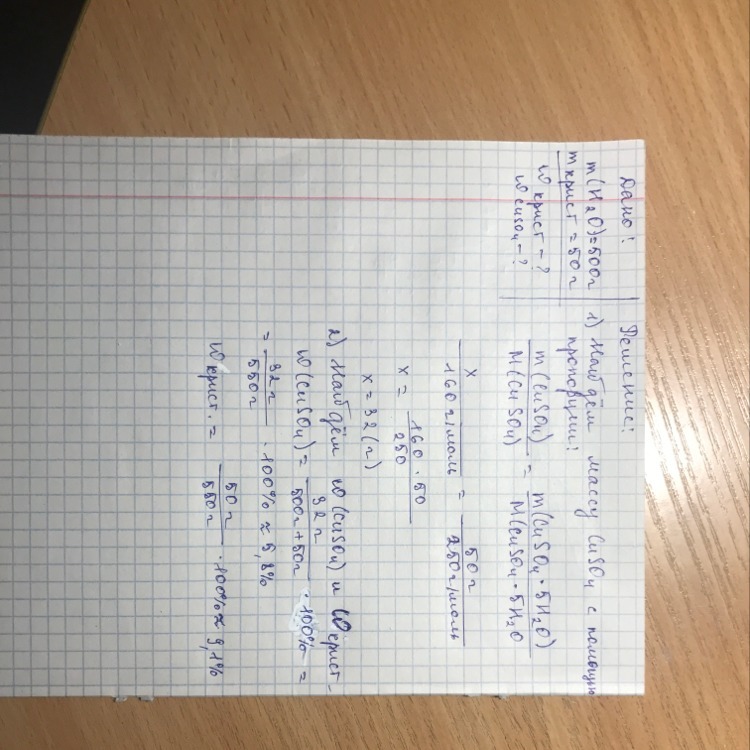 Дано:
m(H₂O)=500г
m крист = 50г
ω крист – ?
ω CuSO₄ – ?
Решение:
1) Найдём массу CuSO₄ с помощью
пропорции:
m(CuSO₄) / M(CuSO₄) = m(CuSO₄·5H₂O) / M(CuSO₄·5H₂O
x / 160г/моль = 50г / 250г/моль
x = 160·50 / 250
x = 32(г)
2) Найдём ω(CuSO₄) и ω крист.
ω(CuSO₄) = 32г / 500г+50г · 100% =
= 32г / 550г · 100% ≈ 5,8%
ω крист. = 50г / 550г · 100% ≈ 9,1%